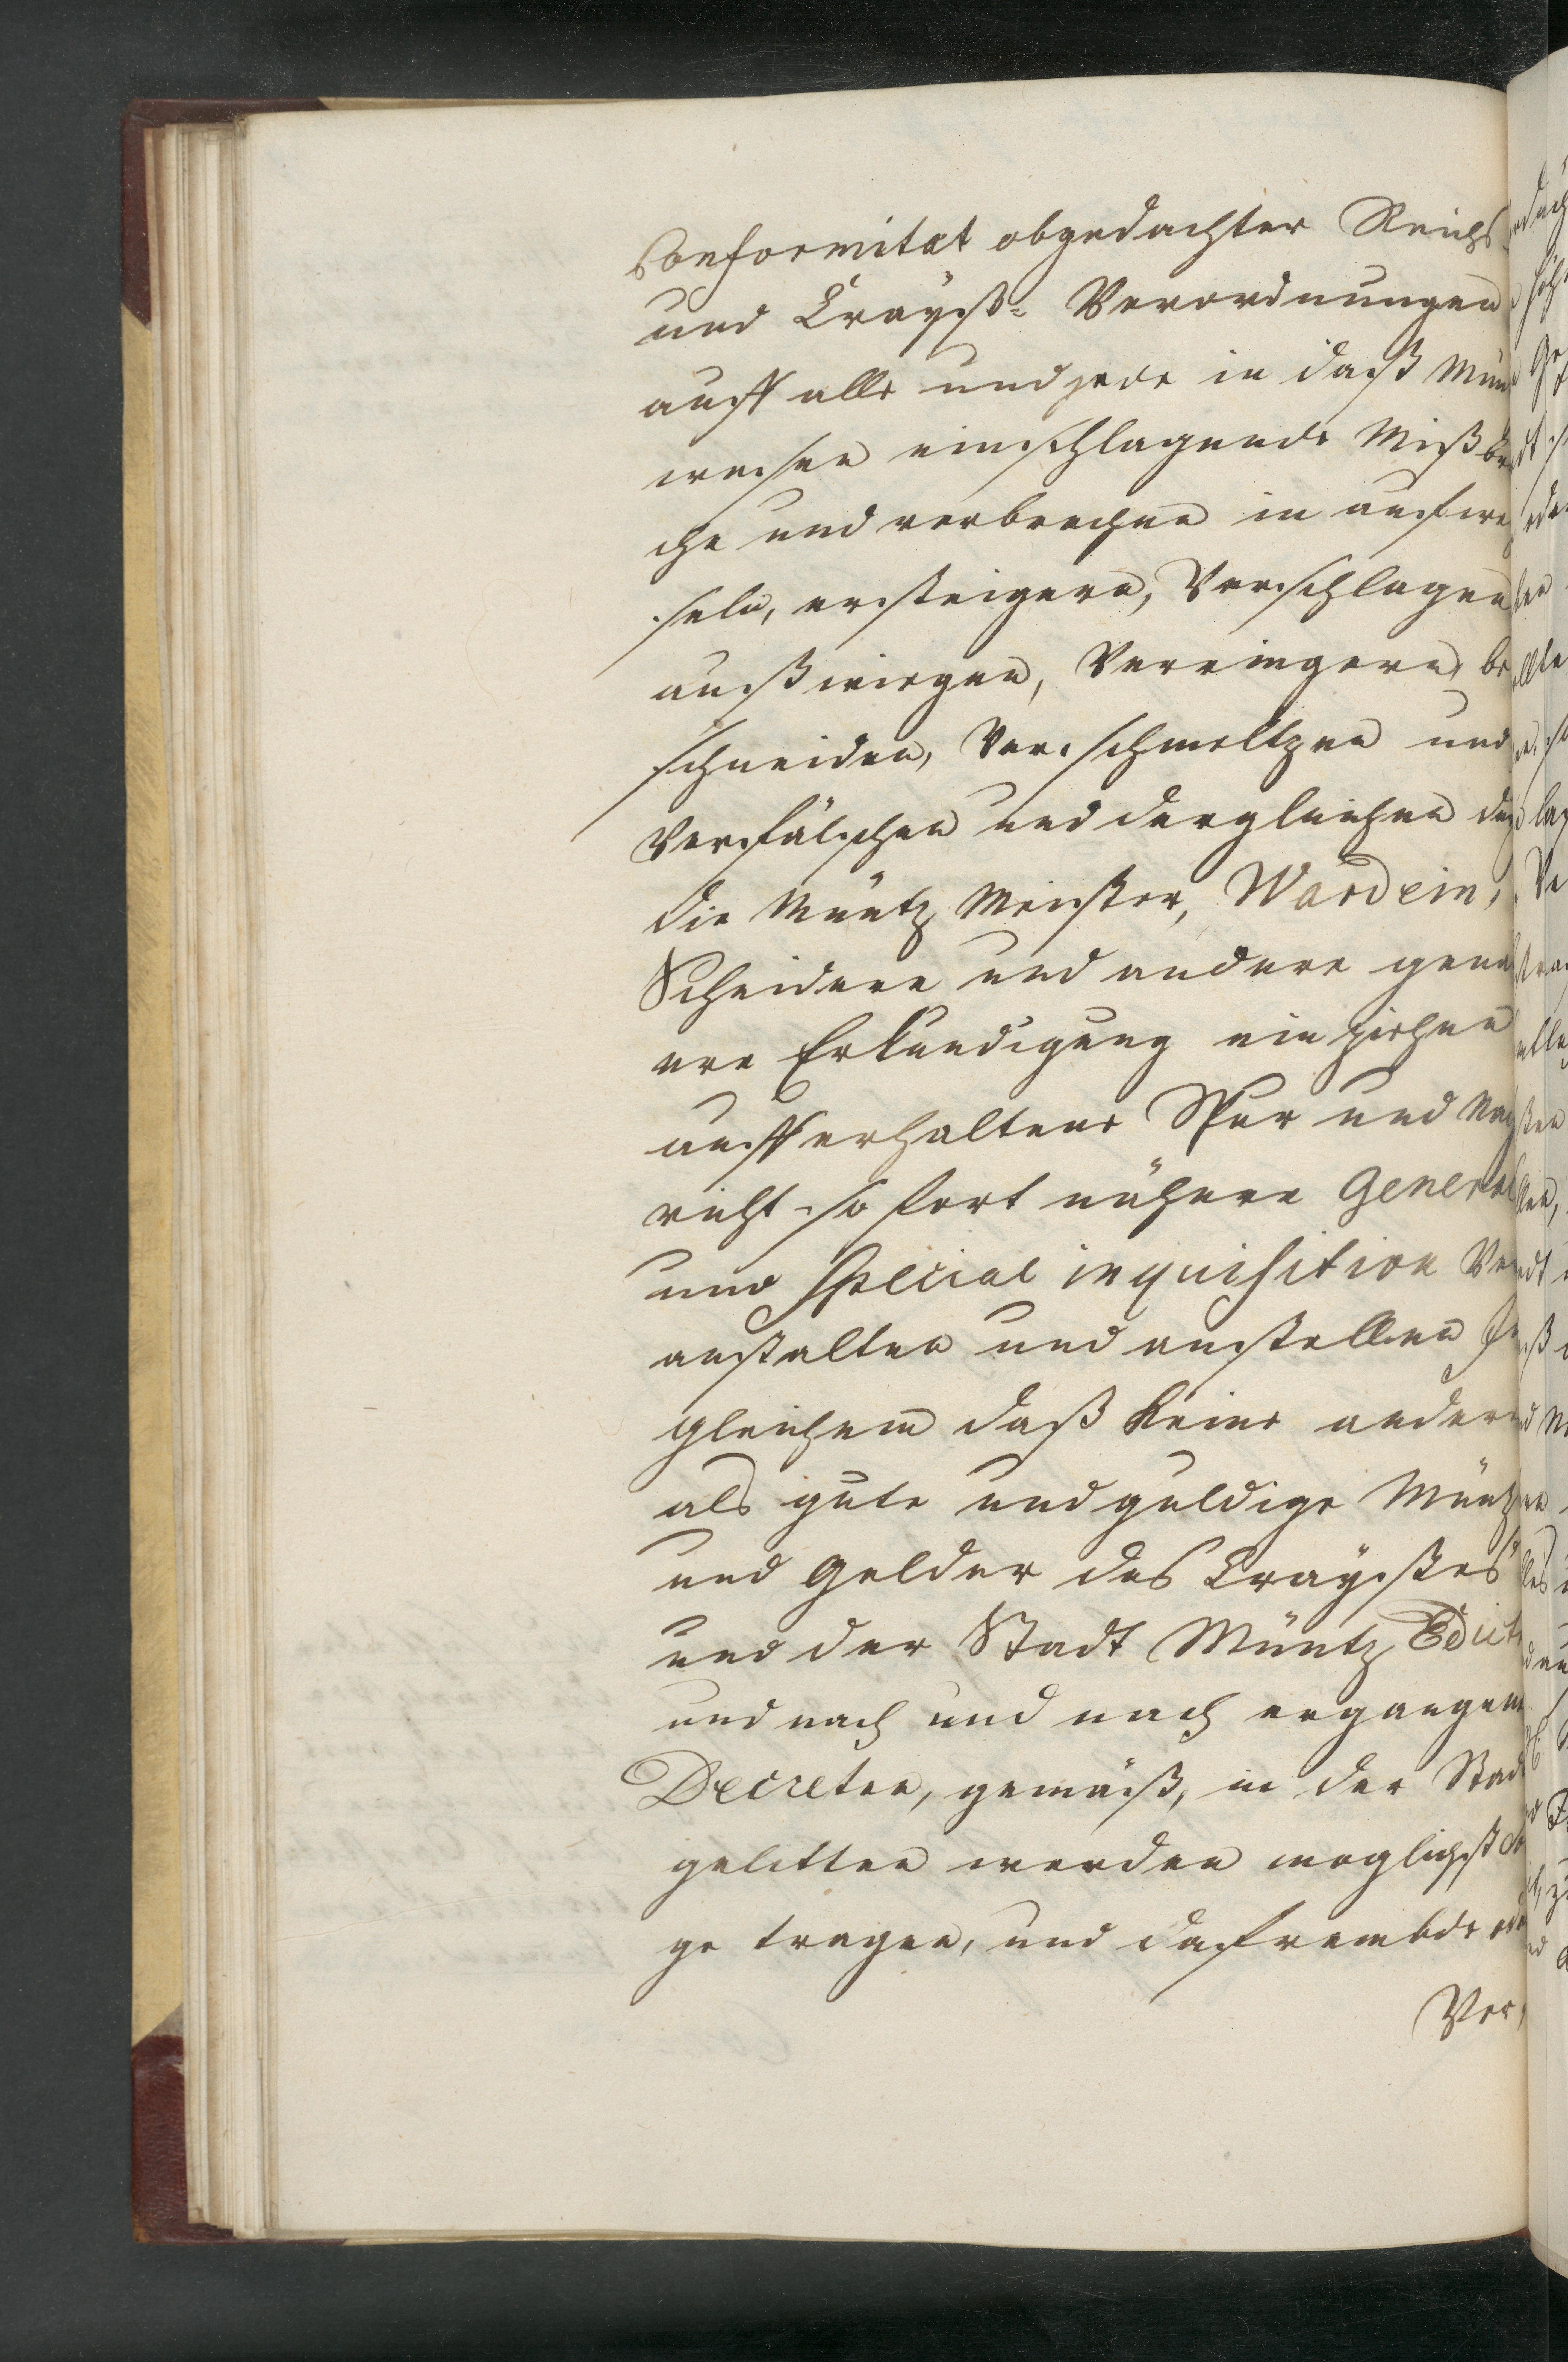 Conformitæt obgedachter Reichs-
und Crayß- Verordnungen
auff alle und jede in daß Mün
wesen einschlagende Mißbr
che und verbrechen in aufwe
seln, ersteigern, Verschlagen
außwiegen, Verringern, be
schneiden, Verschmeltzen und
Verfälschen und dergleichen du
die Müntz Meister, Wardein,
Scheidere und andere gena
ere Erkundigung einziehen
auff erhaltene Spur und Na
richt so fort nähere General
und Special inquisition Ve
anstalten und anstellen
gleichem daß keine andere
als gute und guldige Müntz
und Gelder des Crayßes
und der Stadt Müntz Edict
und nach und nach ergangene
Decreten, gemäß, in der Stad
gelitten werden moglichst
ge tragen, und da frembde
Ver,